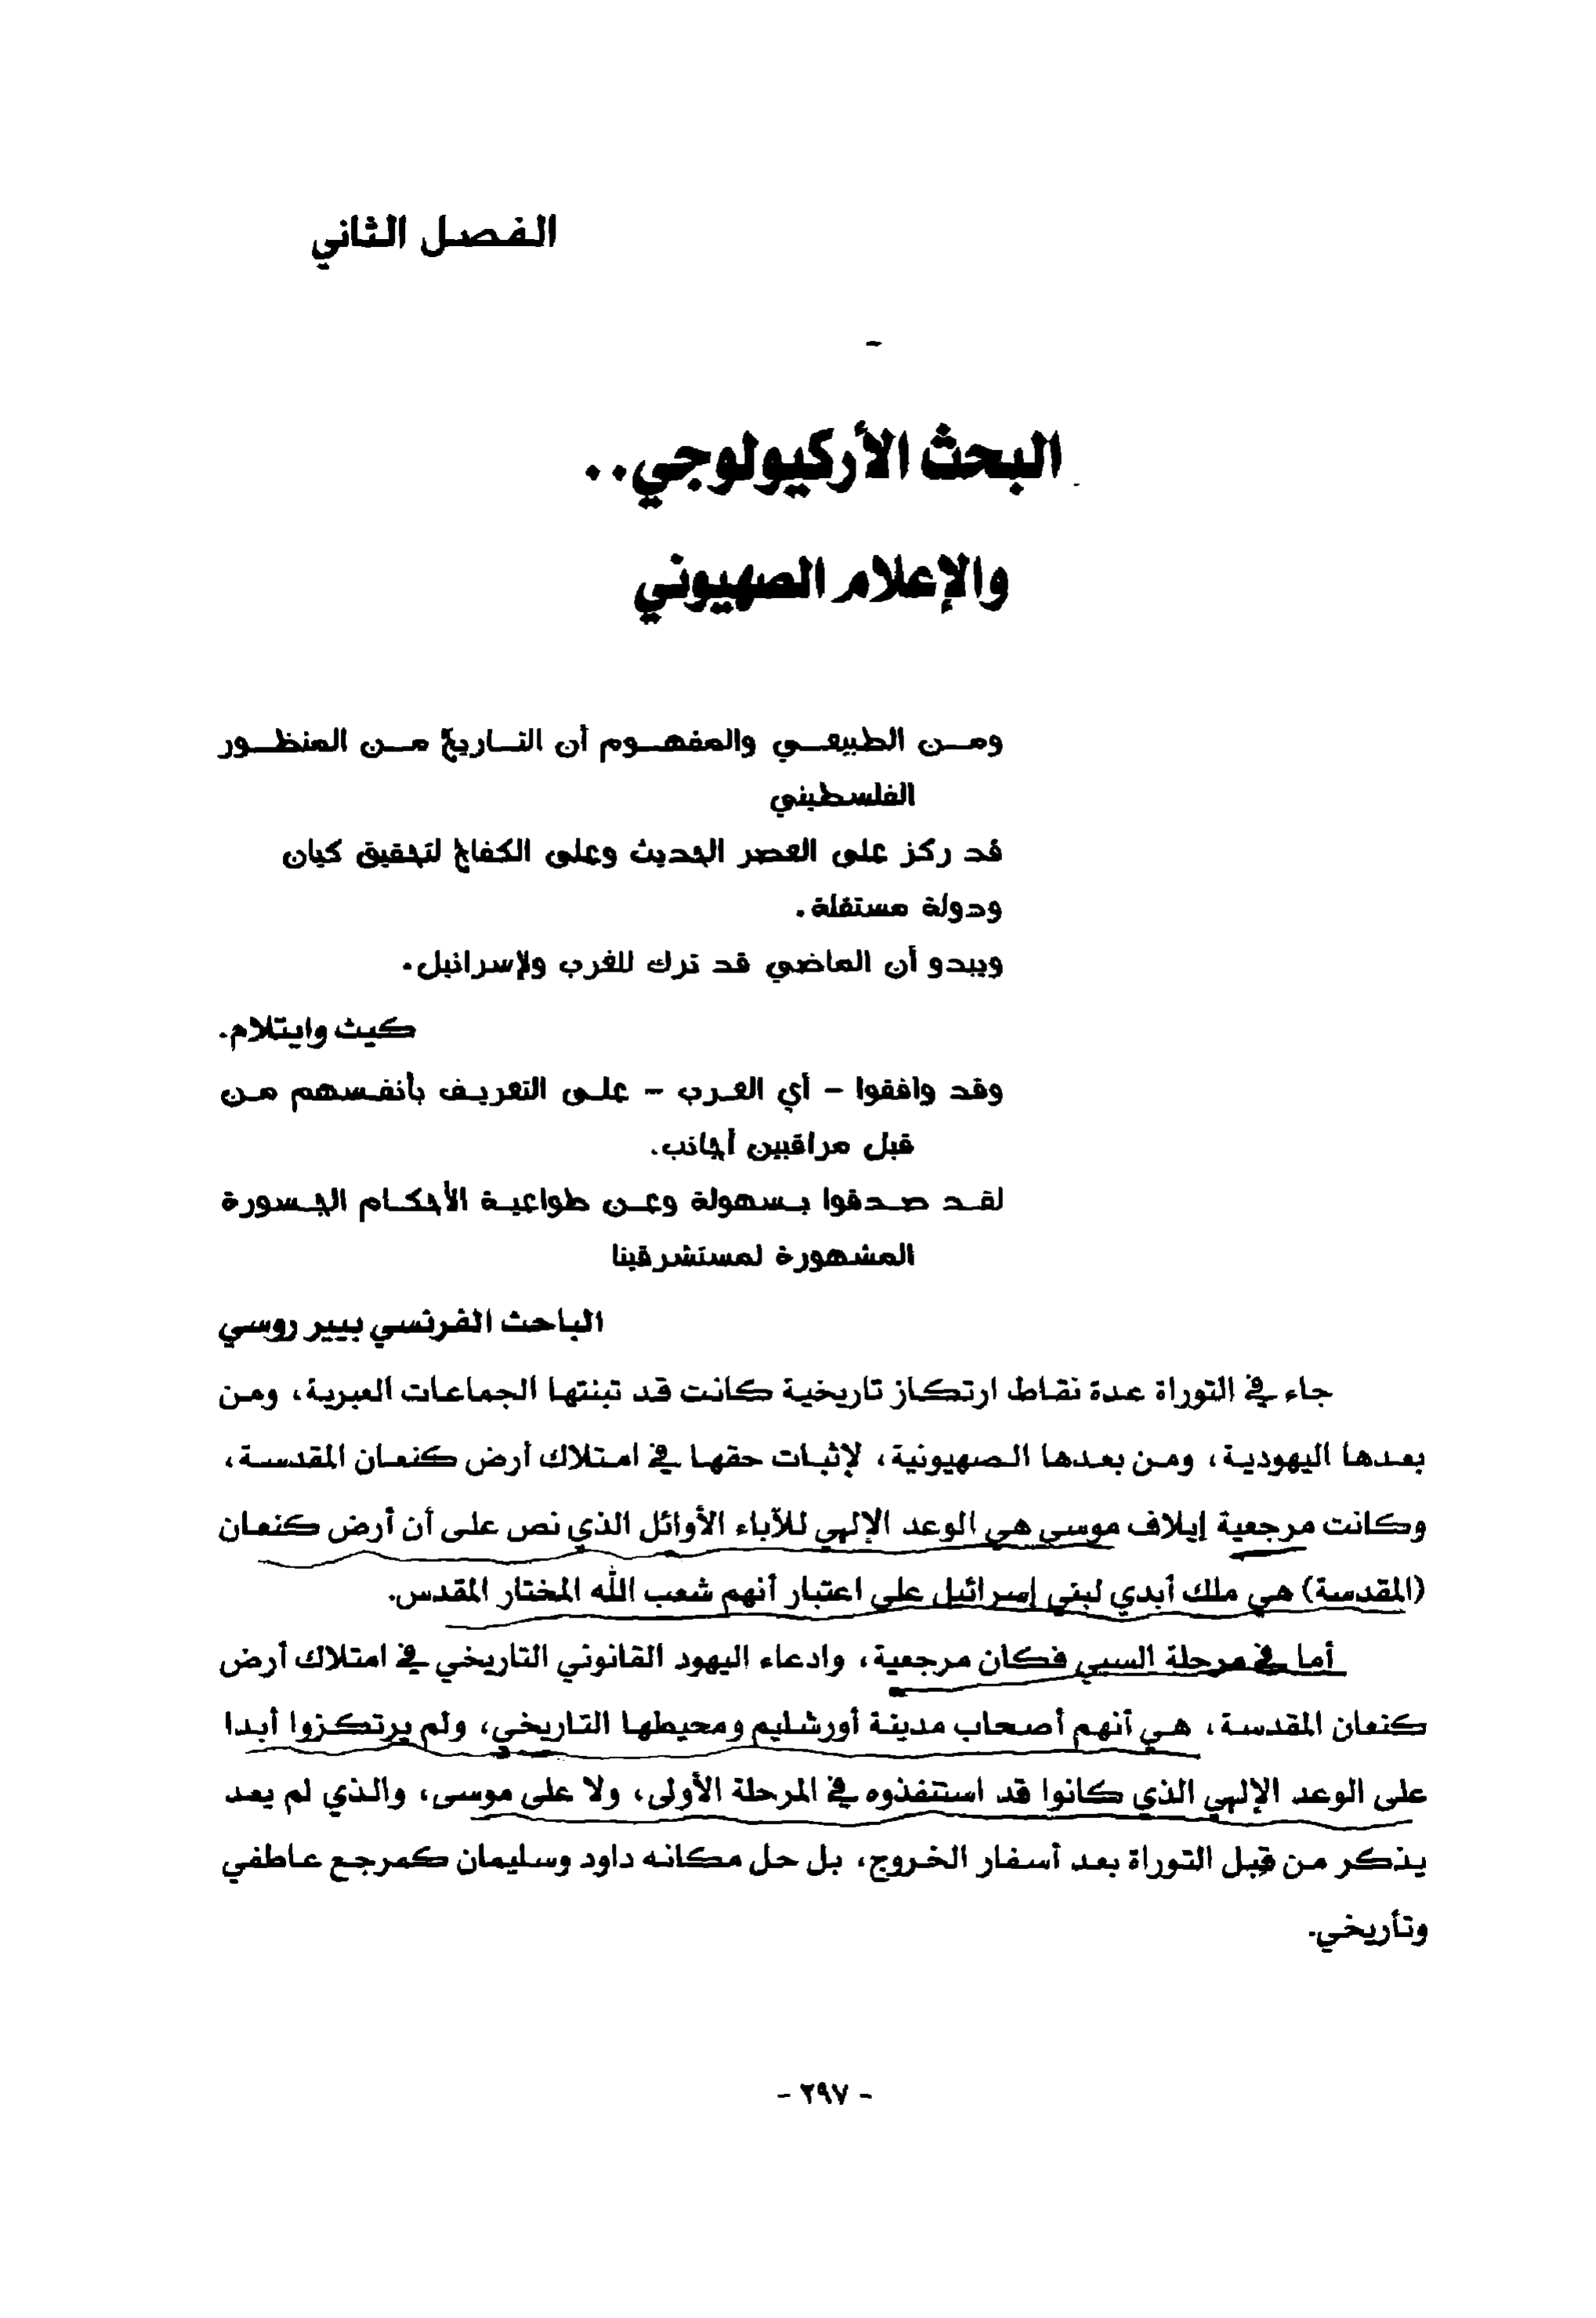 الفصل الثاني
البحث الأركيولوجي..
والإعلام الصهيوني
ومن الطبيعي والمفهوم أن التاريخ من المنظور
الفلسطيني
قد ركز على العصر الحديث وعلى الكفاح لتحقيق كيان
ودولة مستقلة.
ويبدو أن الماضي قد ترك للغرب ولإسرائيل.
كيث وايتلام.
وقد وافقوا - أي العرب - على التعريف بأنفسهم من
قبل مراقبين أجانب.
لقد صدقوا بسهولة وعن طواعية الأحكام الجسورة
المشهورة لمستشرقينا
الباحث الفرنسي بيير روسي
جاء في التوراة عدة نقاط ارتكاز تاريخية كانت قد تبنتها الجماعات العبرية، ومن
بعدها اليهودية، ومن بعدها الصهيونية، لإثبات حقها في امتلاك أرض كنعان المقدسة،
وكانت مرجعية إيلاف موسى هي الوعد الإلهي للآباء الأوائل الذي نص على أن أرض كنعان
(المقدسة) هي ملك أبدي لبني إسرائيل على اعتبار أنهم شعب الله المختار المقدس.
أما في مرحلة السبي فكان مرجعية، وادعاء اليهود القانوني التاريخي في امتلاك أرض
كنعان المقدسة، هي أنهم أصحاب مدينة أورشليم ومحيطها التاريخي، ولم يرتكزوا أبدا
على الوعد الإلهي الذي كانوا قد استنفذوه في المرحلة الأولى، ولا على موسى، والذي لم يعد
يذكر من قبل التوراة بعد أسفار الخروج، بل حل مكانه داود وسليمان كمرجع عاطفي
وتأريخي.
- ٢٩٧ -